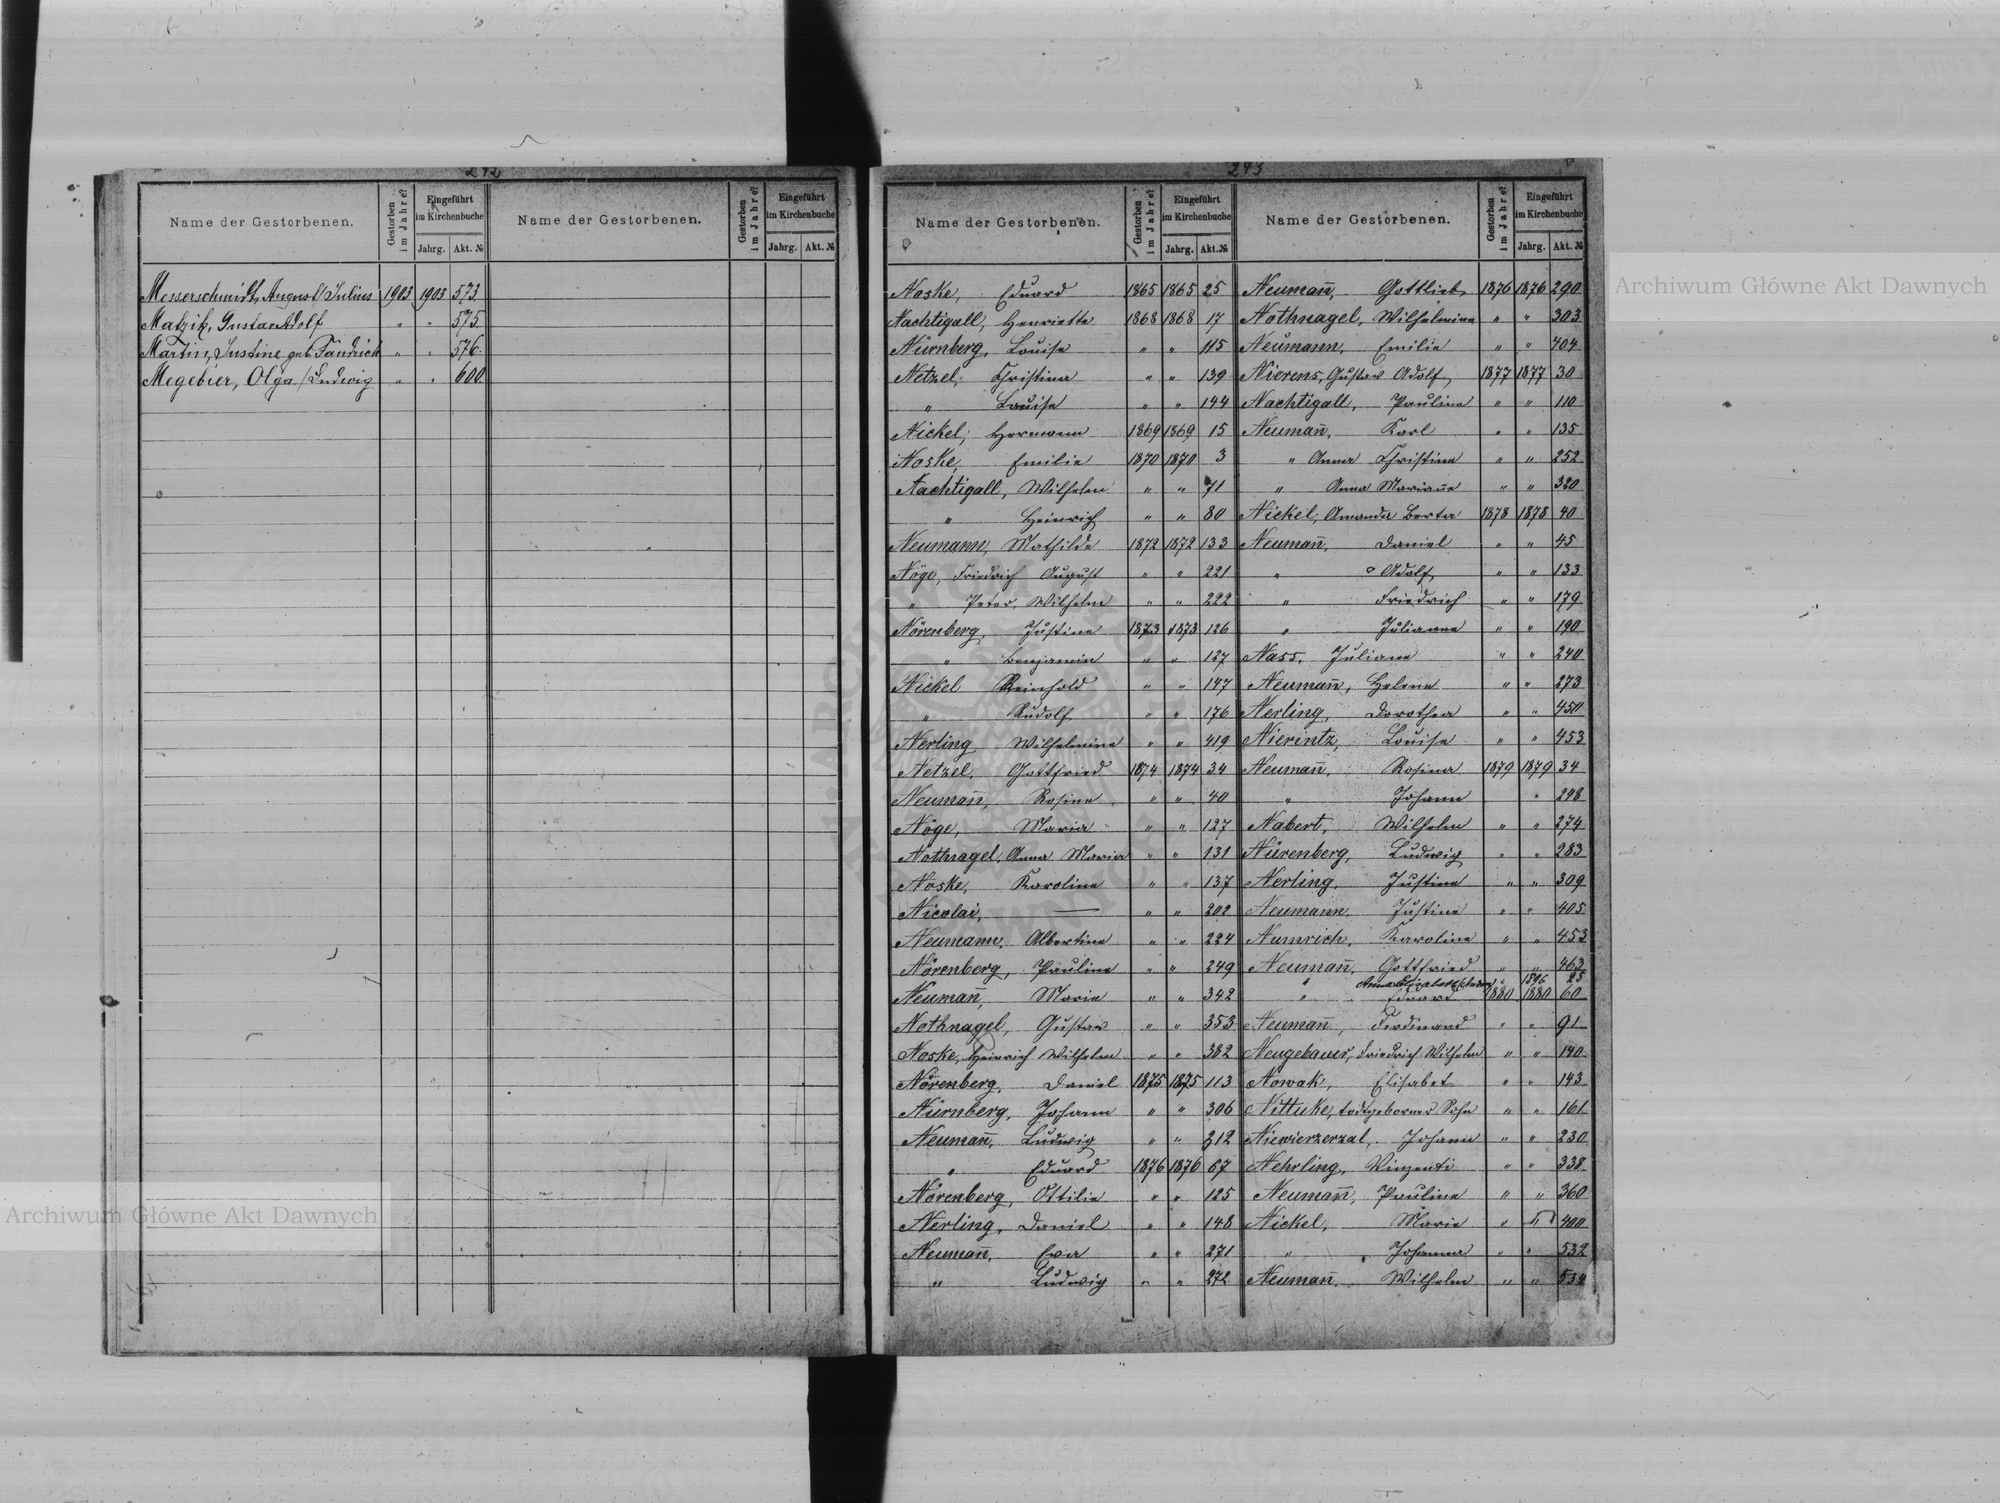 242
Name der Gestorbenen. Gestorben im Jahre? Eingeführt im Kirchenbuche Jahrg. Akt. №
Name der Gestorbenen. Gestorben im Jahre? Eingeführt im Kirchenbuche Jahrg. Akt. №
Messerschmidt, August/Julius 1903 1903 573.
Matzik, Gustav Adolf " " 575.
Martin, Justine geb. Fandrich " " 576.
Megebier, Olga/Ludwig " " 600
243
Name der Gestorbenen. Gestorben im Jahre? Eingeführt im Kirchenbuche Jahrg. Akt. №
Name der Gestorbenen. Gestorben im Jahre? Eingeführt im Kirchenbuche Jahrg. Akt. №
Noske, Eduard 1865 1865 25
Nachtigall, Henriette 1868 1868 17
Nürnberg, Louise " " 115
Netzel, Christina " " 139
" Louise " " 144
Nickel, Hermann 1869 1869 15
Noske, Emilie 1870 1870 3
Nachtigall, Wilhelm " " 71
" Heinrich " " 80
Neumann, Mathilde 1872 1872 133
Nöge, Friedrich August " " 221
" Peter, Wilhelm " " 222
Nörenberg, Justine 1873 1873 126
" Benjamin " " 127
Nickel Reinhold " " 147
" Rudolf " " 176
Nerling Wilhelmine " " 419
Netzel, Gottfried 1874 1874 34
Neumañ, Rosine " " 40
Nöge, Maria " " 127
Nothnagel, Anna Maria " " 131
Noske, Karoline " " 137
Nicolai, — " " 202
Neumann, Albertine " " 224
Nörenberg, Pauline " " 249
Neumañ, Marie " " 342
Nothnagel, Gustav " " 353
Noske, Heinrich Wilhelm " " 382
Nörenberg, Daniel 1875 1875 113
Nürnberg, Johann " " 306
Neumañ, Ludwig " " 312
" Eduard 1876 1876 67
Nörenberg, Ottilie " " 125
Nerling, Daniel " " 148
Neumañ, Eva " " 271
" Ludwig " " 272
Neumañ, Gottlieb 1876 1876 290
Nothnagel, Wilhelmine " " 303
Neumann, Emilie " " 404
Nierens, Gustav Adolf, 1877 1877 30
Nachtigall, Pauline " " 110
Neumañ, Karl " " 135
" Anna Christine " " 252
" Anna Mariañe " " 320
Nickel, Amanda Berta 1878 1878 40
Neumañ, Daniel " " 45
" Adolf " " 133
" Friedrich " " 179
" Julianne " " 190
Nass, Juliane " " 240
Neumañ, Helene " " 273
Nerling, Dorothea " " 450
Nierintz, Louise " " 453
Neumañ, Rosina 1879 1879 34
" Johann " 248
Nabert, Wilhelm " " 274
Nürenberg, Ludwig " " 283
Nerling, Justine " " 309
Neumann, Justine " " 405
Numrich, Karoline " " 453
Neumañ, Gottfried " " 463
" Anna Elisabeth " 1896 25
" Eduard 1880 1880 60
Neumañ, Ferdinand " " 91
Neugebauer, Friedrich Wilhelm " " 140
Nowak, Elisabet " " 143
Nittuke, todtgeborner Sohn " " 161
Niewierzerzal, Johann " " 230
Nehrling, Vinzenti " " 338
Neumañ, Pauline " " 360
Nickel, Marie " " 400
" Johanna " " 532
Neumañ, Wilhelm " "
Archiwum Główne Akt Dawnych
Archiwum Główne Akt Dawnych